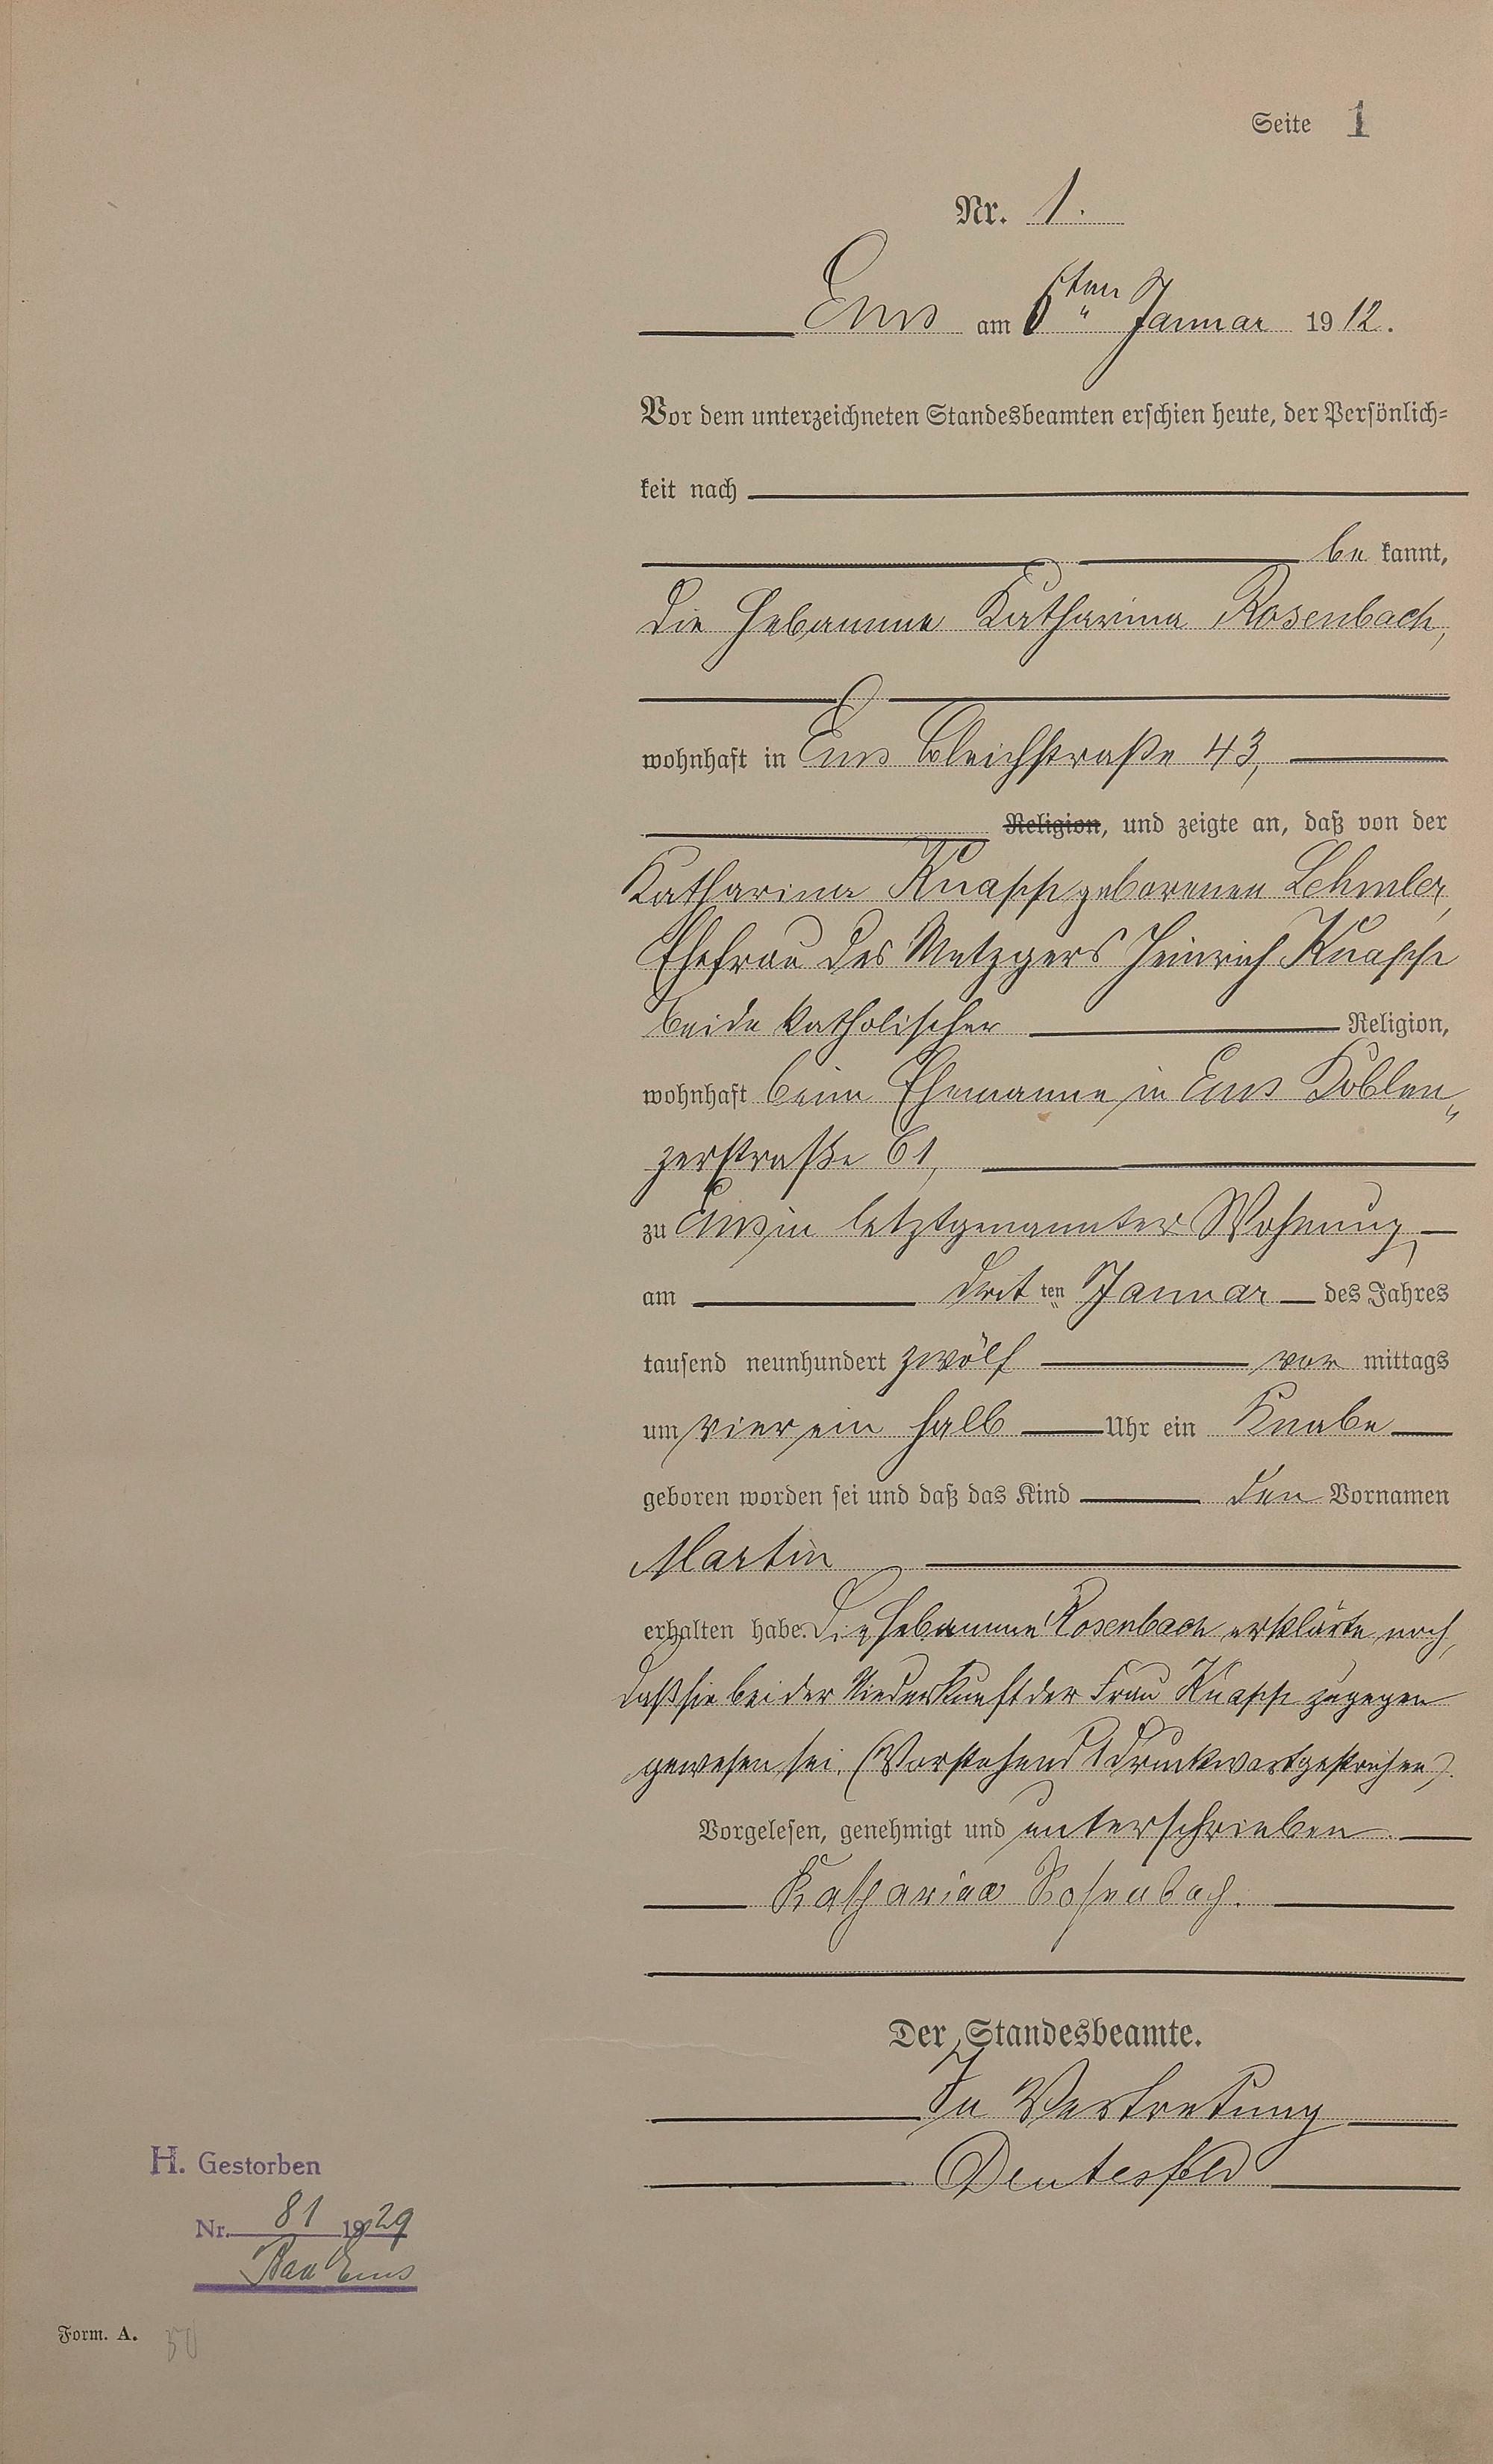 Seite 1
Nr. 1.
Ems am 6ten Januar 1912.
Vor dem unterzeichneten Standesbeamten erschien heute, der Persönlich=
keit nach
be kannt,
die Hebamme Katharina Rosenbach,
wohnhaft in Ems Bleichstraße 43,
Religion, und zeigte an, daß von der
Katharina Knapp geborenen Lehmler,
Ehefrau des Metzgers Heinrich Knapp
beide katholischer Religion,
wohnhaft beim Ehemanne in Ems Koblen„
zerstraße 61,
zu Ems in letztgenannter Wohnung,
am drit ten Januar des Jahres
tausend neunhundert zwölf vor mittags
um vier ein halb Uhr ein Knabe
geboren worden sei und daß das Kind den Vornamen
Martin
erhalten habe. Die Hebamme Rosenbach erklärte noch,
daß sie bei der Niederkunft der Frau Knapp zugegen
gewesen sei. (Vorstehend 1 Druckwort gestrichen).
Vorgelesen, genehmigt und unterschrieben.
Katharina Rosenbach.
Der Standesbeamte.
In Vertretung
H. Gestorben
Nr. 81 1929
Bad Ems
Form. A.